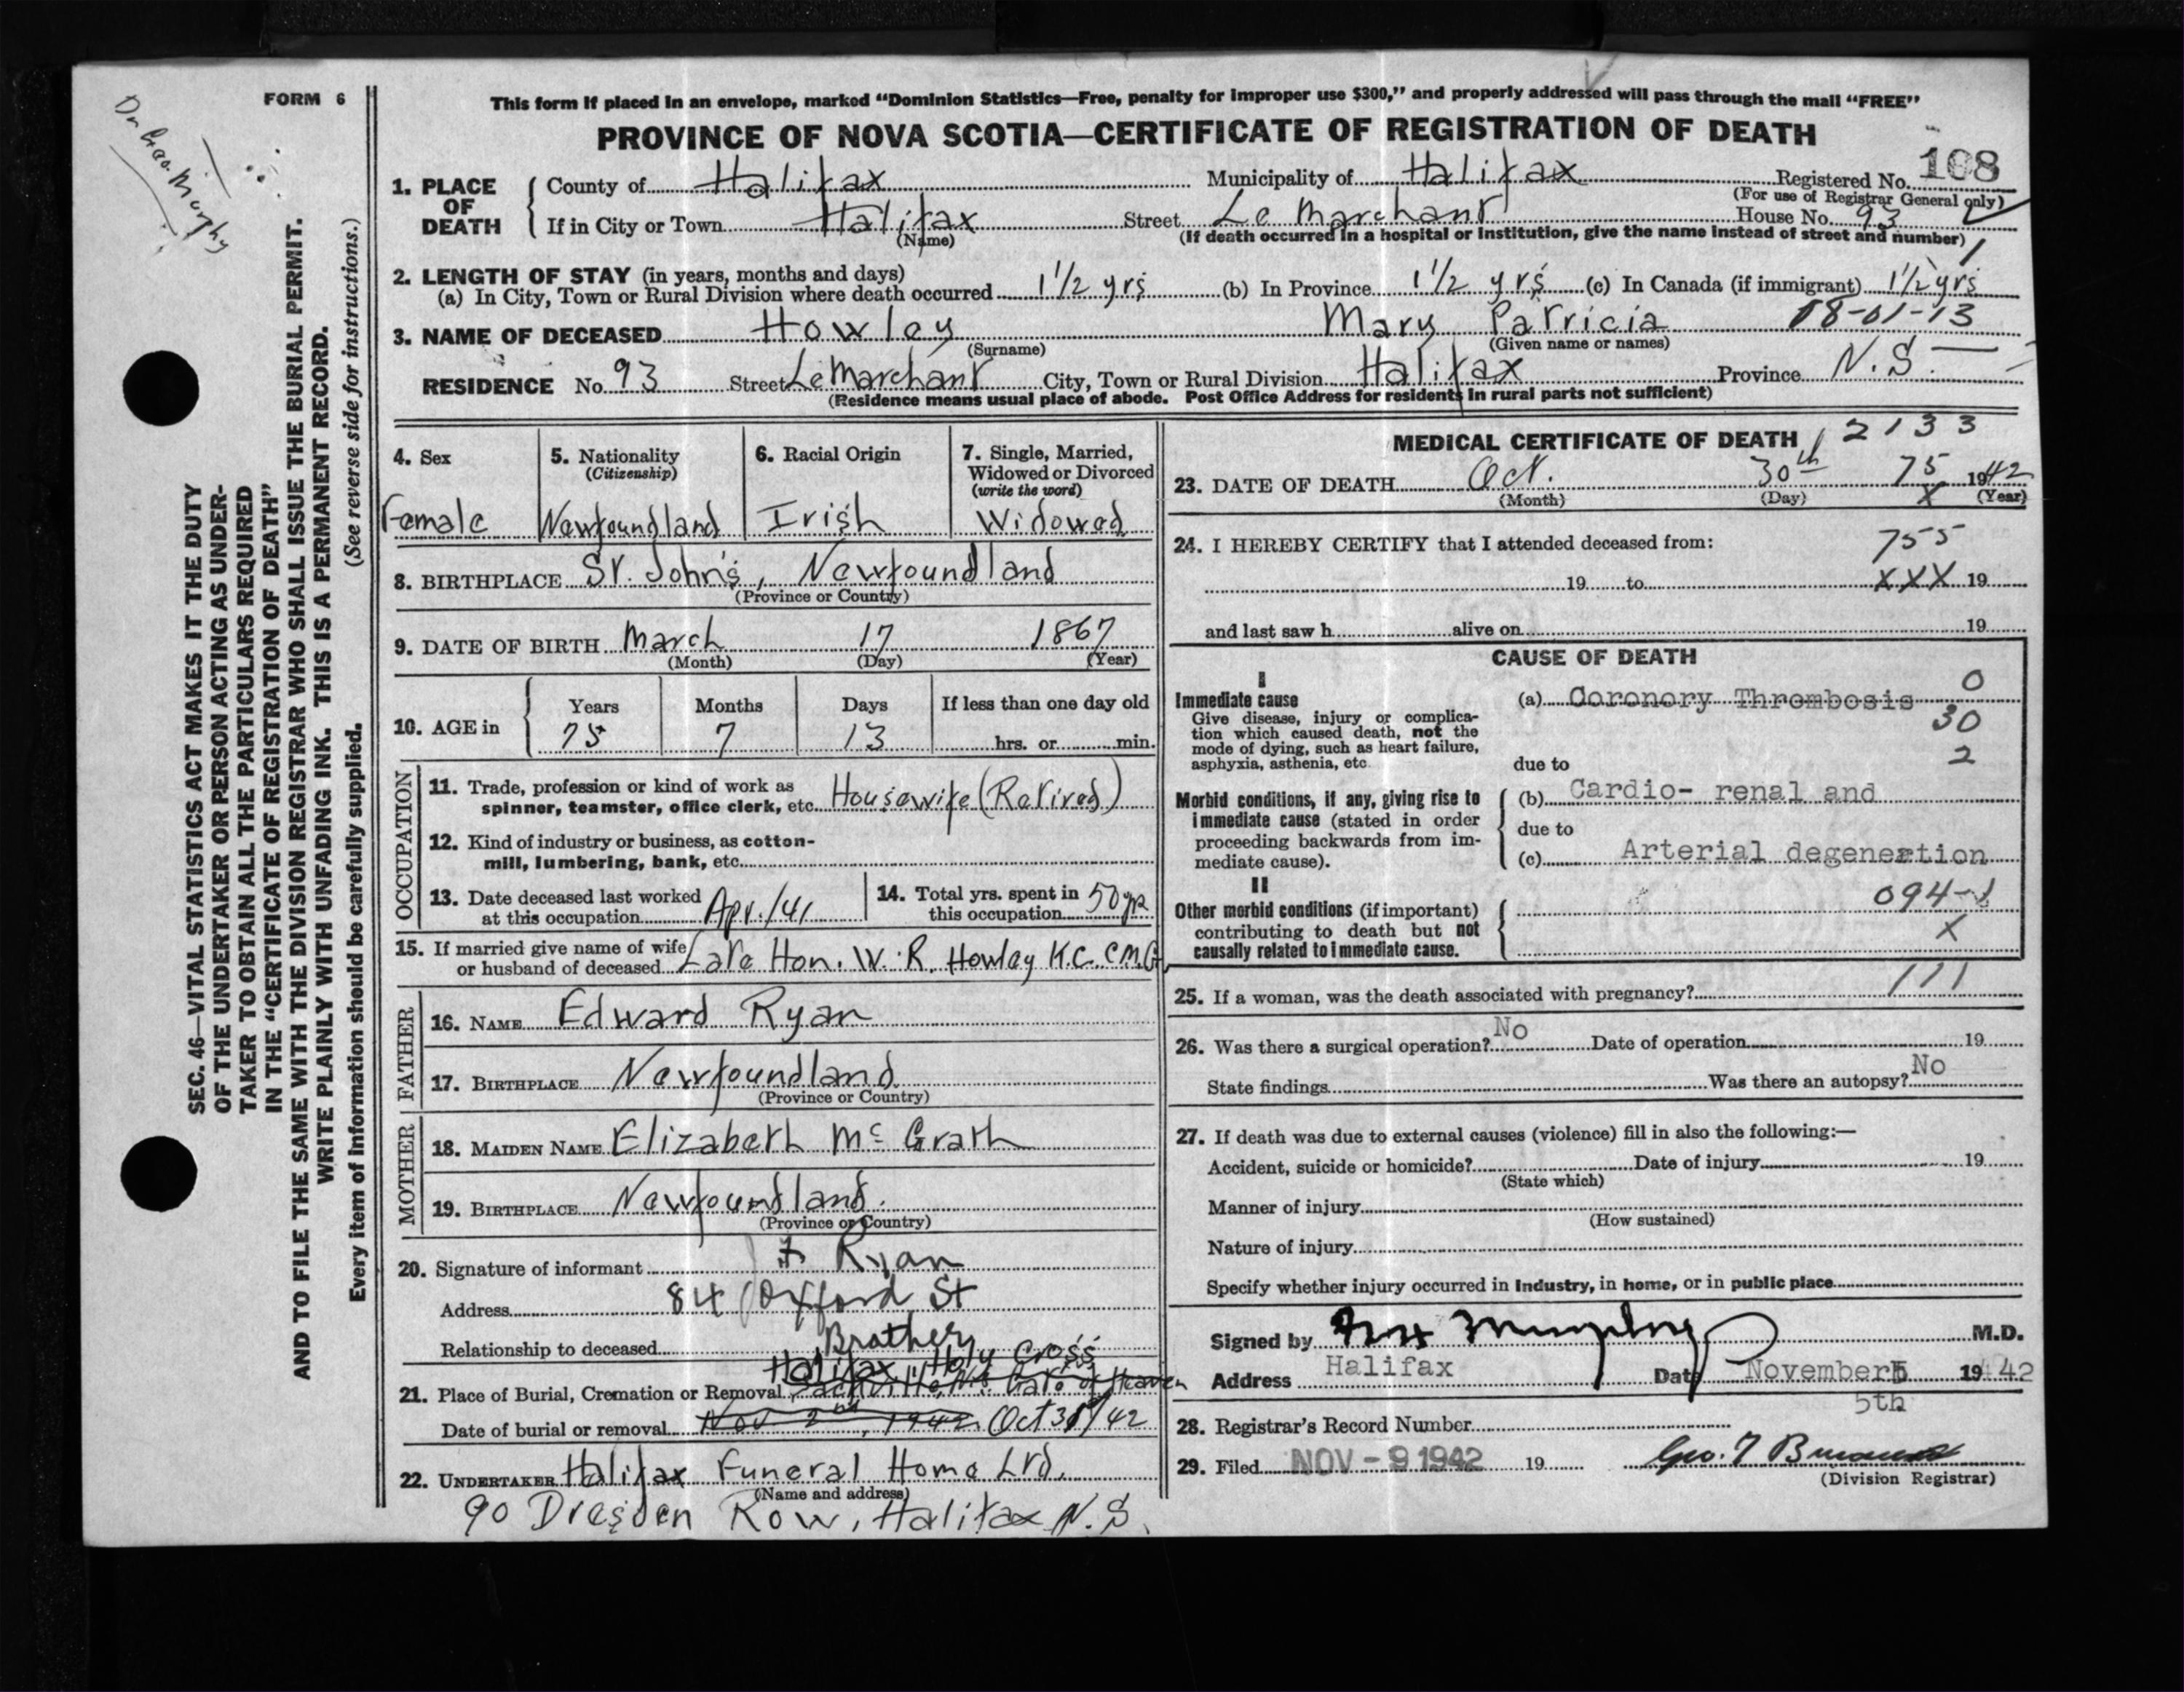 FORM 6
Dr Geo. Murphy
This form if placed in an envelope, marked “Dominion Statistics—Free, penalty for improper use $300,” and properly addressed will pass through the mail “FREE”
PROVINCE OF NOVA SCOTIA—CERTIFICATE OF REGISTRATION OF DEATH
108
1. PLACE OF DEATH { County of Halifax Municipality of Halifax Registered No.
(For use of Registrar General only)
If in City or Town Halifax Street Le Marchant House No. 93
(Name) (If death occurred in a hospital or institution, give the name instead of street and number)
2. LENGTH OF STAY (in years, months and days)
(a) In City, Town or Rural Division where death occurred 1 1/2 yrs (b) In Province 1 1/2 yrs (c) In Canada (if immigrant) 1 1/2 yrs
3. NAME OF DECEASED Howley Mary Patricia 18-01-13
(Surname) (Given name or names)
RESIDENCE No. 93 Street LeMarchant City, Town or Rural Division Halifax Province N.S.
(Residence means usual place of abode. Post Office Address for residents in rural parts not sufficient)
4. Sex
Female
5. Nationality
(Citizenship)
Newfoundland
6. Racial Origin
Irish
7. Single, Married,
Widowed or Divorced
(write the word)
Widowed
8. BIRTHPLACE St. John's, Newfoundland
(Province or Country)
9. DATE OF BIRTH March 17 1867
(Month) (Day) (Year)
10. AGE in { Years Months Days If less than one day old
75 7 13 hrs. or min.
OCCUPATION
11. Trade, profession or kind of work as
spinner, teamster, office clerk, etc. Housewife (Retired)
12. Kind of industry or business, as cotton-
mill, lumbering, bank, etc.
13. Date deceased last worked
at this occupation Apr./41
14. Total yrs. spent in
this occupation 50 yrs
15. If married give name of wife
or husband of deceased Late Hon. W. R. Howley K.C. C.M.G
FATHER
16. NAME Edward Ryan
17. BIRTHPLACE Newfoundland
(Province or Country)
MOTHER
18. MAIDEN NAME Elizabeth Mc Grath
19. BIRTHPLACE Newfoundland.
(Province or Country)
20. Signature of informant F. Ryan
Address 84 Oxford St
Relationship to deceased Brother
Halifax, Holy Cross
21. Place of Burial, Cremation or Removal Sackville, N.S. Gate of Heaven
Date of burial or removal Nov. 2nd, 1942 Oct 31/42
22. UNDERTAKER Halifax Funeral Home Ltd.
(Name and address)
90 Dresden Row, Halifax N.S.
MEDICAL CERTIFICATE OF DEATH 12133
23. DATE OF DEATH Oct. 30th 75 1942
(Month) (Day) X (Year)
24. I HEREBY CERTIFY that I attended deceased from: 755
19 to XXX 19
and last saw h alive on 19
CAUSE OF DEATH
I
Immediate cause (a) Coronory Thrombosis 0
Give disease, injury or complica-
tion which caused death, not the
mode of dying, such as heart failure,
asphyxia, asthenia, etc.
30
2
due to
Morbid conditions, if any, giving rise to
immediate cause (stated in order
proceeding backwards from im-
mediate cause).
(b) Cardio- renal and
due to
(c) Arterial degenertion
II
Other morbid conditions (if important)
contributing to death but not
causally related to immediate cause.
094-1
X
25. If a woman, was the death associated with pregnancy? 111
26. Was there a surgical operation? No Date of operation 19
State findings Was there an autopsy? No
27. If death was due to external causes (violence) fill in also the following:—
Accident, suicide or homicide? Date of injury 19
(State which)
Manner of injury
(How sustained)
Nature of injury
Specify whether injury occurred in industry, in home, or in public place
Signed by Murphy M.D.
Address Halifax Date November 5 1942
5th
28. Registrar's Record Number
29. Filed NOV - 9 1942 19 Geo. F
(Division Registrar)
SEC. 46—VITAL STATISTICS ACT MAKES IT THE DUTY
OF THE UNDERTAKER OR PERSON ACTING AS UNDER-
TAKER TO OBTAIN ALL THE PARTICULARS REQUIRED
IN THE “CERTIFICATE OF REGISTRATION OF DEATH”
AND TO FILE THE SAME WITH THE DIVISION REGISTRAR WHO SHALL ISSUE THE BURIAL PERMIT.
WRITE PLAINLY WITH UNFADING INK. THIS IS A PERMANENT RECORD.
Every item of information should be carefully supplied. (See reverse side for instructions.)